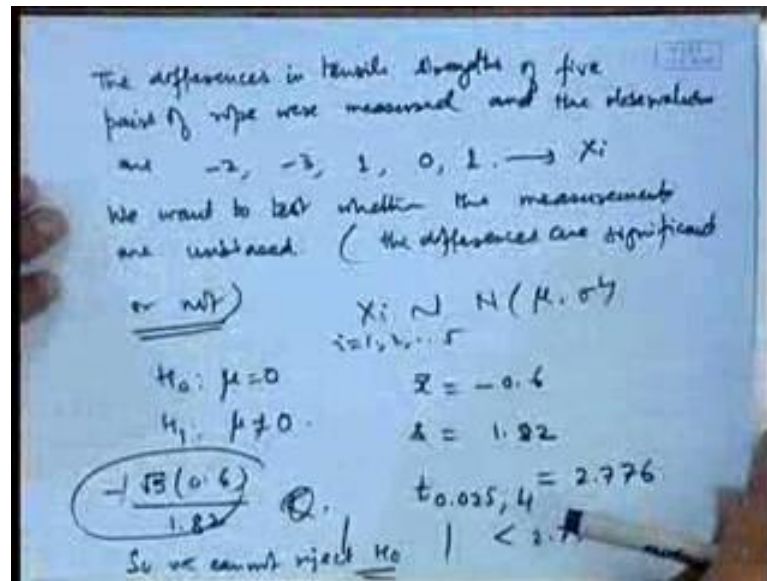 The differences in tensile strengths of five
pairs of rope were measured and the observations
are -2, -3, 1, 0, 1. → Xi
We want to test whether the measurements
are unbiased. ( the differences are significant
or not)
Xi ~ N(μ, σ²)
i=1, 2, ... 5
H₀: μ=0
x̄ = -0.6
H₁: μ≠0.
s = 1.82
√5 (0.6)
1.82
t0.025, 4 = 2.776
< 2.7
So we cannot reject H₀